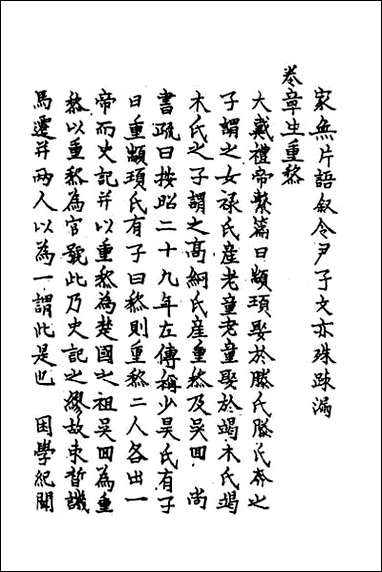 家無片語叙令尹子文亦殊踈漏
卷章生重黎
大戴禮帝繫篇曰顓頊娶於滕氏滕氏奔之
子謂之女祿氏產老童老童娶於竭水氏竭
水氏之子謂之高緺氏產重黎及吳回 尚
書疏曰按昭二十九年左傳稱少昊氏有子
曰重顓頊氏有子曰黎則重黎二人各出一
帝而史記并以重黎為楚國之祖吳回為重
黎以重黎為官號此乃史記之繆故束晳譏
馬遷并兩人以為一謂此是也 困學紀聞